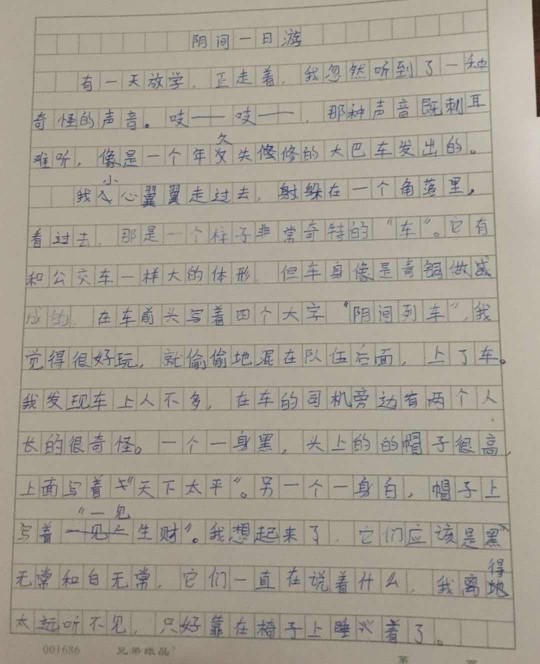 阴间一日游
有一天放学，正走着，我忽然听到了一种
奇怪的声音。吱——吱——，那种声音既刺耳
难听，像是一个年久失修的大巴车发出的。
我小心翼翼走过去，躲在一个角落里，
看过去，那是一个样子非常奇特的“车”。它有
和公交车一样大的体形，但车身像是青铜做
成的，在车前头写着四个大字“阴间列车”，我
觉得很好玩，就偷偷地混在队伍后面，上了车。
我发现车上人不多，在车的司机旁边有两个人
长的很奇怪。一个一身黑，头上的的帽子很高，
上面写着“天下太平”。另一个一身白，帽子上
写着“一见生财”。我想起来了，它们应该是黑
无常和白无常，它们一直在说着什么，我离得
太远听不见，只好靠在椅子上睡着了。
001686 兄弟纸品
第 页